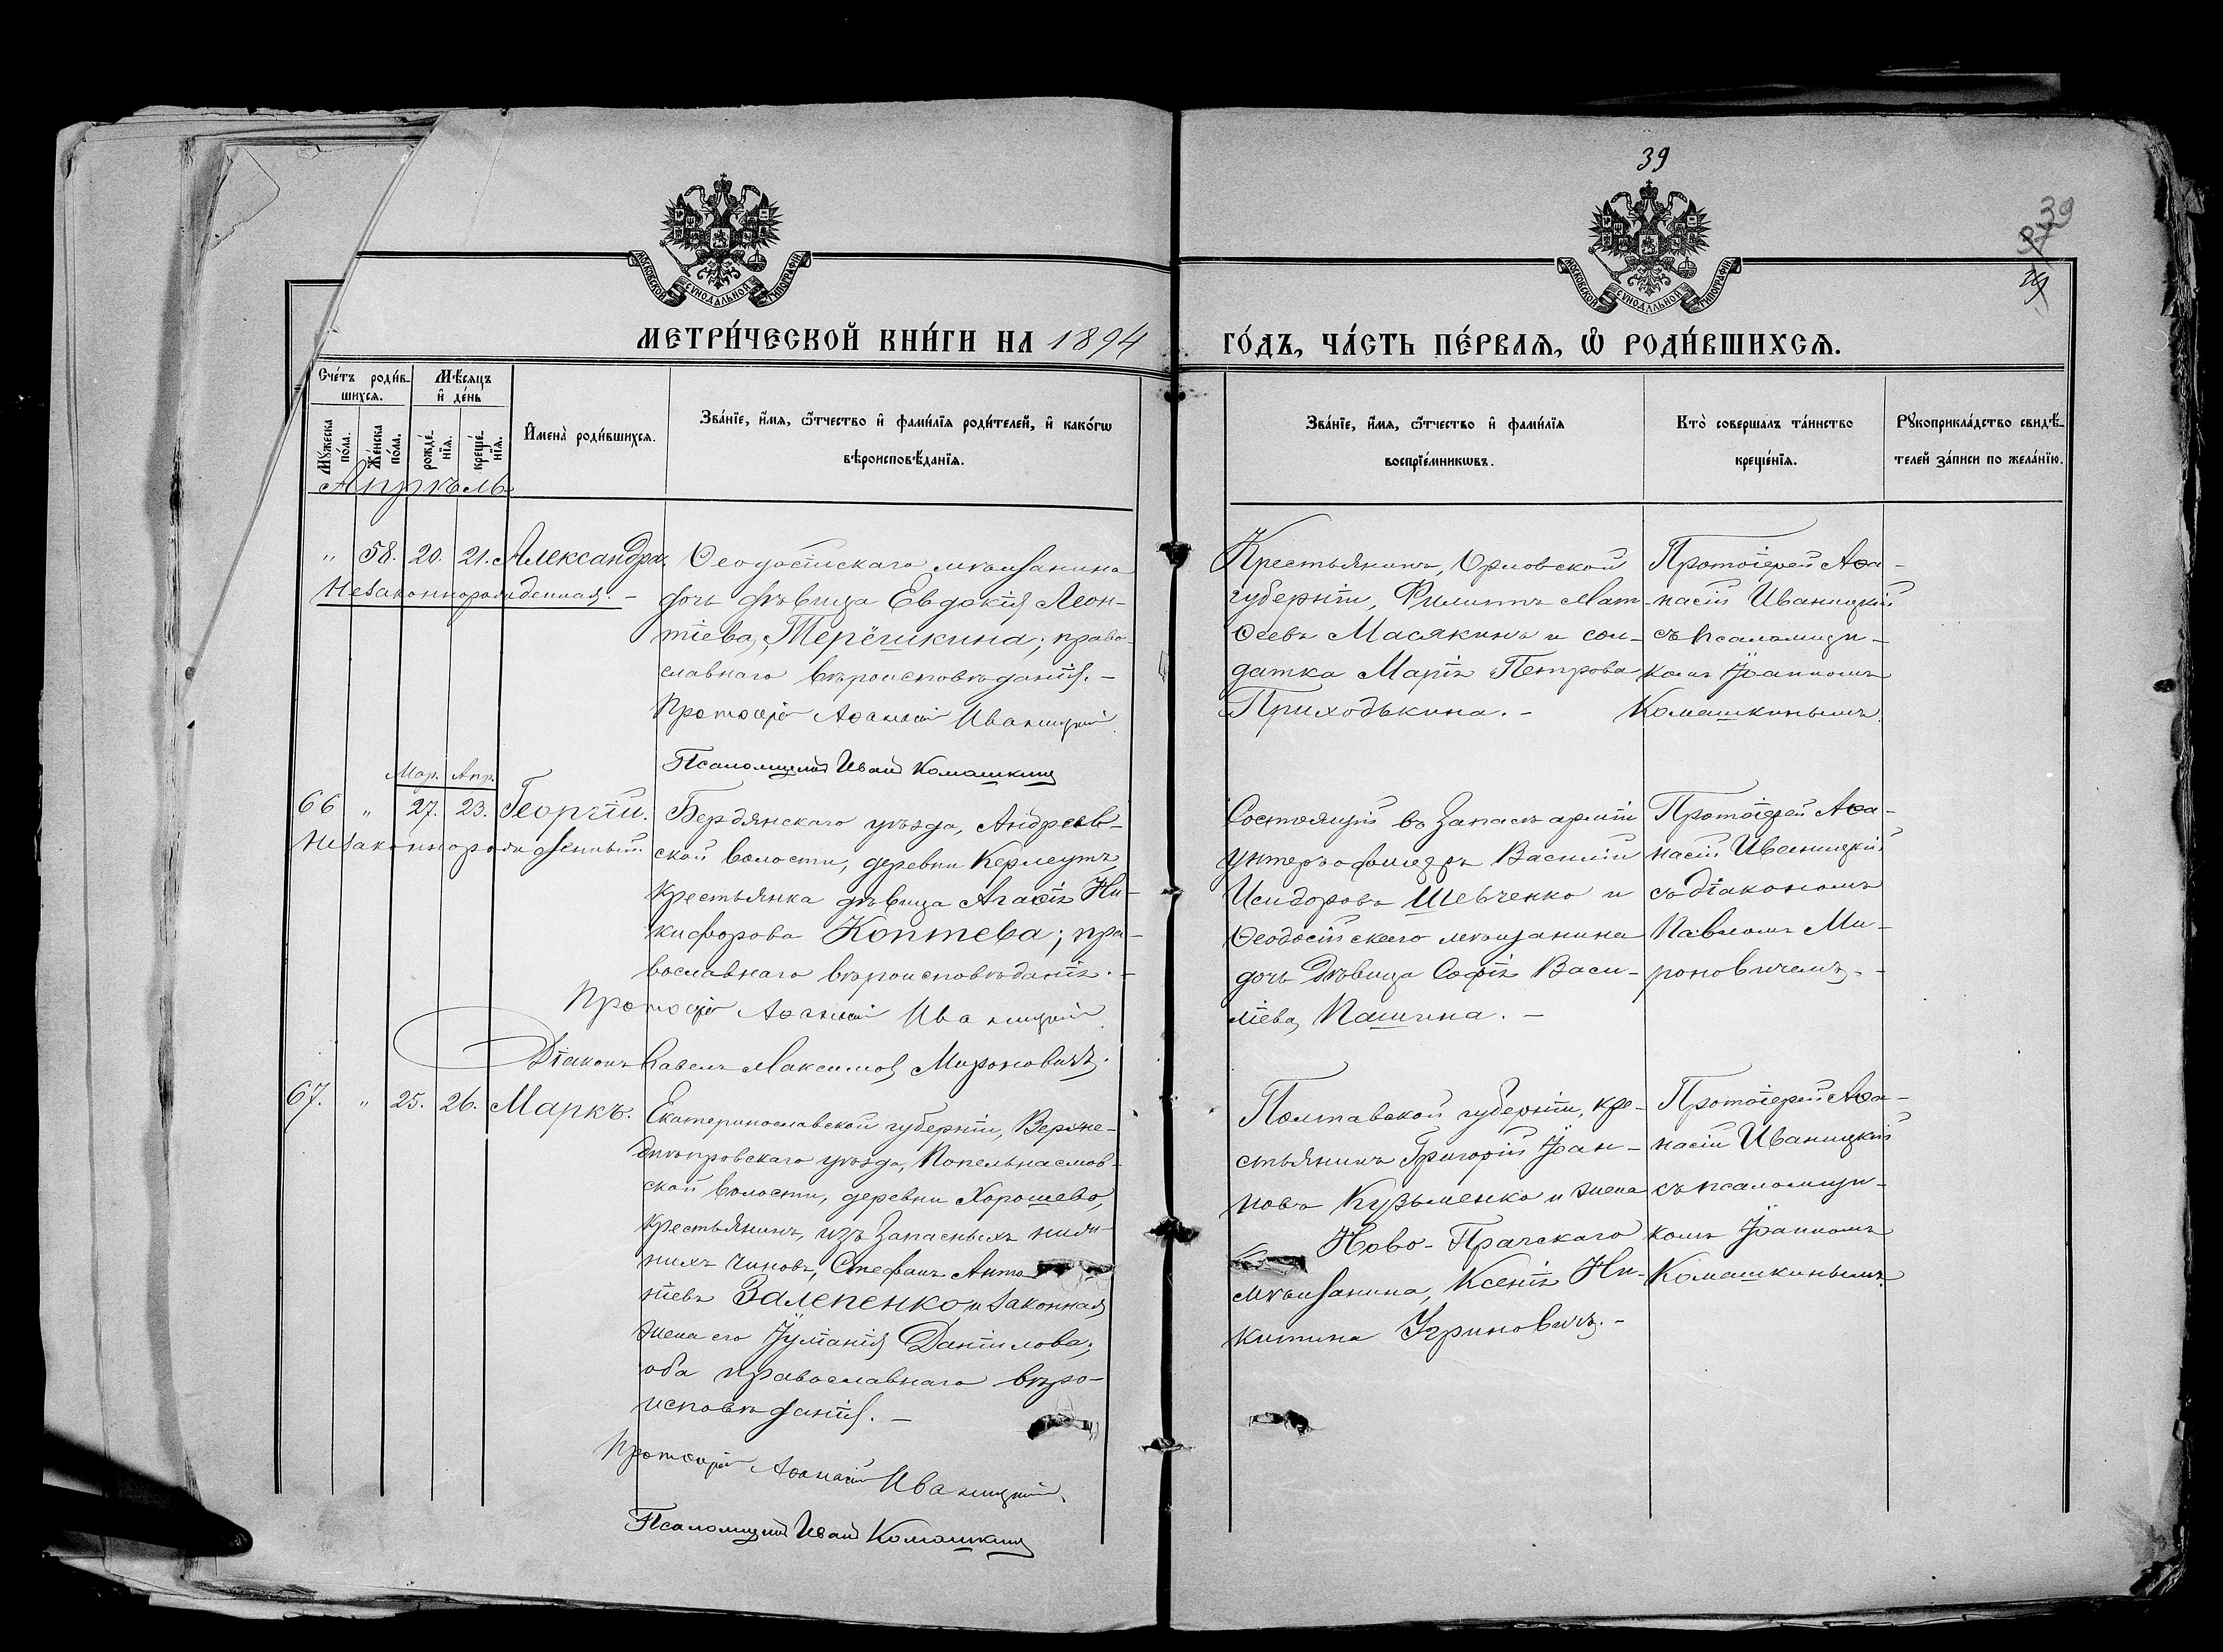 39
39
МОСКОВСКОЙ СѴНОДАЛЬНОЙ ТИПОГРАФІИ
МОСКОВСКОЙ СѴНОДАЛЬНОЙ ТИПОГРАФІИ
МЕТРИ́ЧЕСКОЙ КНИ́ГИ НА 1894
ГО́ДЪ, ЧА́СТЬ ПЕ́РВАѦ, Ѡ РОДИ́ВШИХСѦ.
Сче́тъ роди́в-
шихся.
Мѣ́сяцъ
и де́нь
Му́жеска
по́ла.
Же́нска
по́ла.
рожде́-
нїя.
креще́-
нїя.
Имена̀ роди́вшихся.
Зва́нїе, и́мя, ѻ́тчество и фами́лїя роди́телей, и како́гѡ
вѣроисповѣ́данїя.
Зва́нїе, и́мя, ѻ́тчество и фами́лїя
воспрїе́мникѡвъ.
Кто̀ совершалъ та́инство
креще́нїя.
Рукоприкла́дство свидѣ́-
телей за́писи по жела́нїю.
Апрѣль
" 58. 20. 21. Александра.
Незаконнорожденная. –
Ѳеодосійскаго мѣщанина
дочь дѣвица Евдокія Леон-
тіева Терёшкина; право-
славнаго вѣроисповѣданія. –
Протоіерей Аѳанасій Иваницкій
Псаломщикъ Иванъ Комашкинъ
Крестьянинъ, Орловской
губерніи, Филиппъ Мат-
ѳеевъ Масякинъ и сол-
датка Марія Петрова
Приходькина. –
Протоіерей Аѳа-
насій Иваницкій
съ псаломщи-
комъ Іоанномъ
Комашкинымъ.
Мар. Апр.
66 " 27. 23. Георгій.
Незаконнорожденный.
Бердянскаго уѣзда, Андреев-
ской волости, деревни Кермеутъ
крестьянка дѣвица Агаѳія Ни-
кифорова Коптева; пра-
вославнаго вѣроисповѣданія. –
Протоіерей Аѳанасій Иваницкій
Діаконъ Павелъ Максимовъ Мироновичъ.
Состоящій въ запасѣ арміи
унтеръ-офицеръ Василій
Исидоровъ Шевченко и
Ѳеодосійскаго мѣщанина
дочь дѣвица Софія Васи-
ліева Пашина. –
Протоіерей Аѳа-
насій Иваницкій
съ діакономъ
Павломъ Ми-
роновичемъ. –
67. " 25. 26. Маркъ.
Екатеринославской губерніи, Верхне-
днѣпровскаго уѣзда, Попельнастов-
ской волости, деревни Хорошево,
крестьянинъ, изъ запасныхъ ниж-
нихъ чиновъ, Стефанъ Анто-
ніевъ Залепенко и законная
жена его Іуліанія Даніилова;
оба православнаго вѣро-
исповѣданія. –
Протоіерей Аѳанасій Иваницкій.
Псаломщикъ Иванъ Комашкинъ
Полтавской губерніи, кре-
стьянинъ Григорій Іоан-
новъ Кузьменко и жена
Ново-Прагскаго
мѣщанина, Ксенія Ни-
китина Угриновичъ. –
Протоіерей Аѳа-
насій Иваницкій
съ псаломщи-
комъ Іоанномъ
Комашкинымъ.